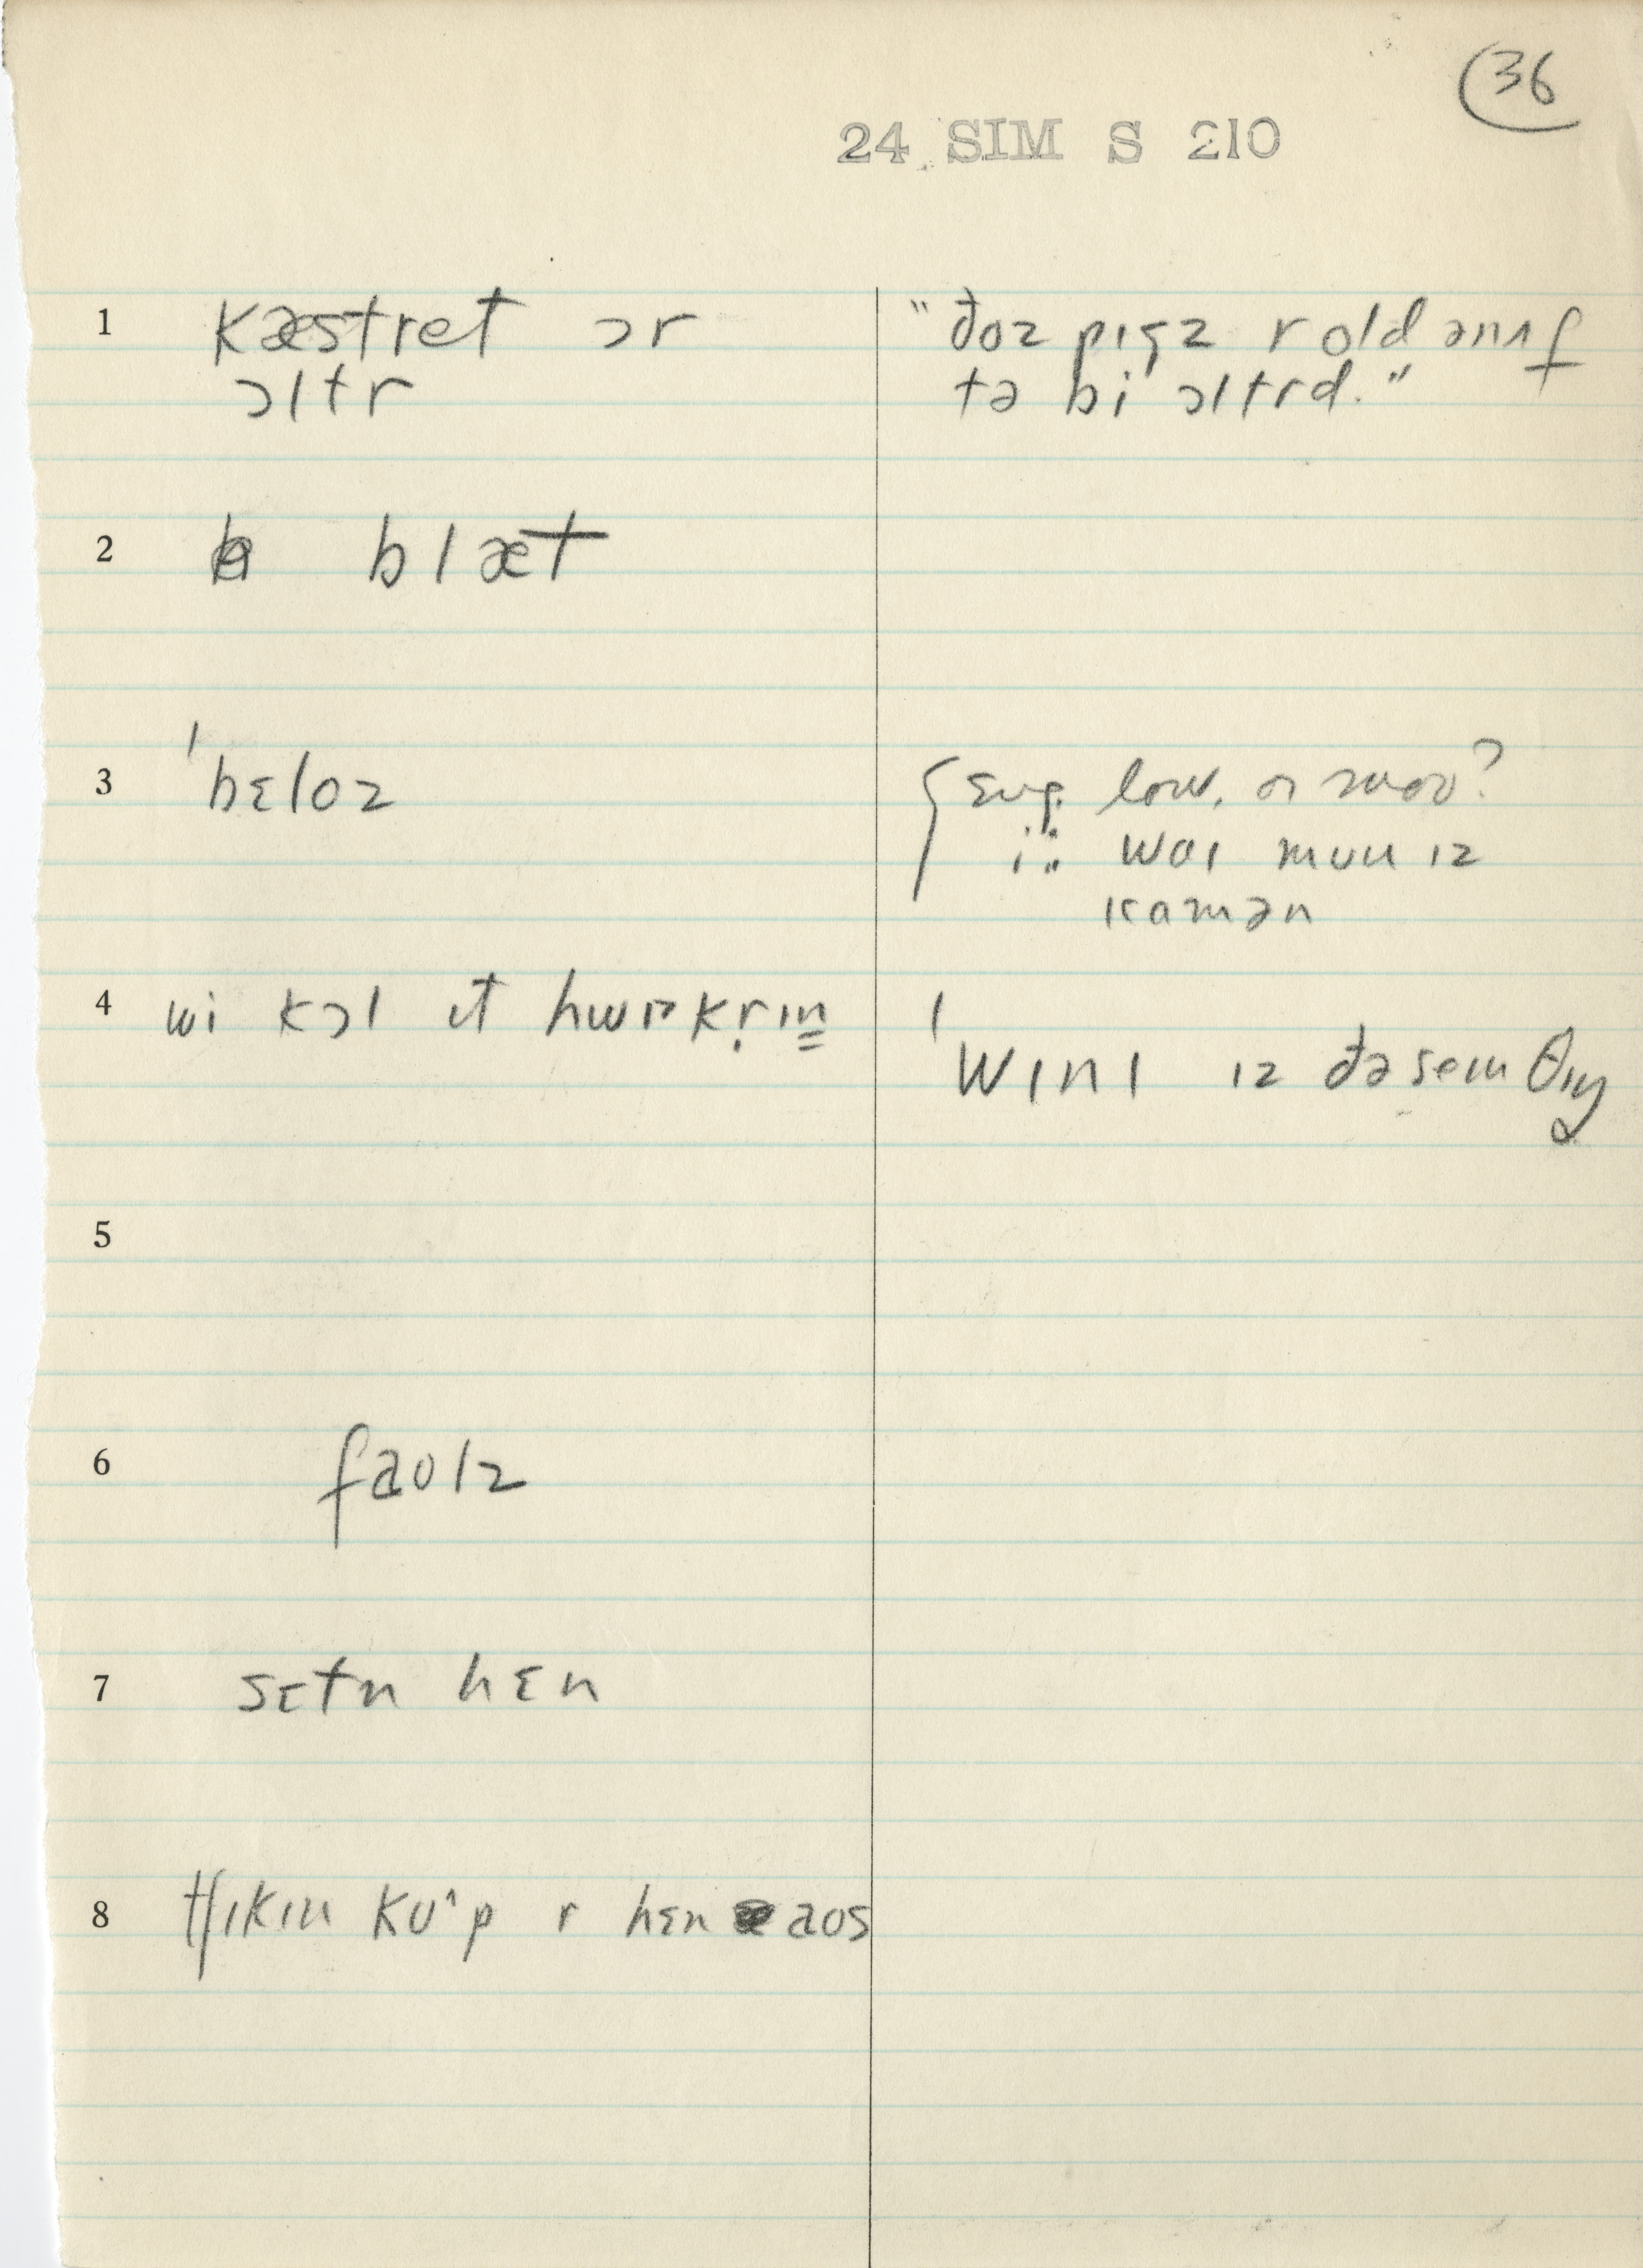 36
24 SIM S 210
1 kæstret ɔr
ɔltr
"đoz pıgz r old ənʌf
tə bi ɔltrd."
2 blæt
3 ˈbɛloz
low, or moo?
i: woı muu ız
kamən
4 wi kɔl ıt hwıckṛın
ˈwını ız đə sem θıŋ
5
6 faulz
7 sɛtn hɛn
8 tʃıkın kuˆp r hɛn aʊs